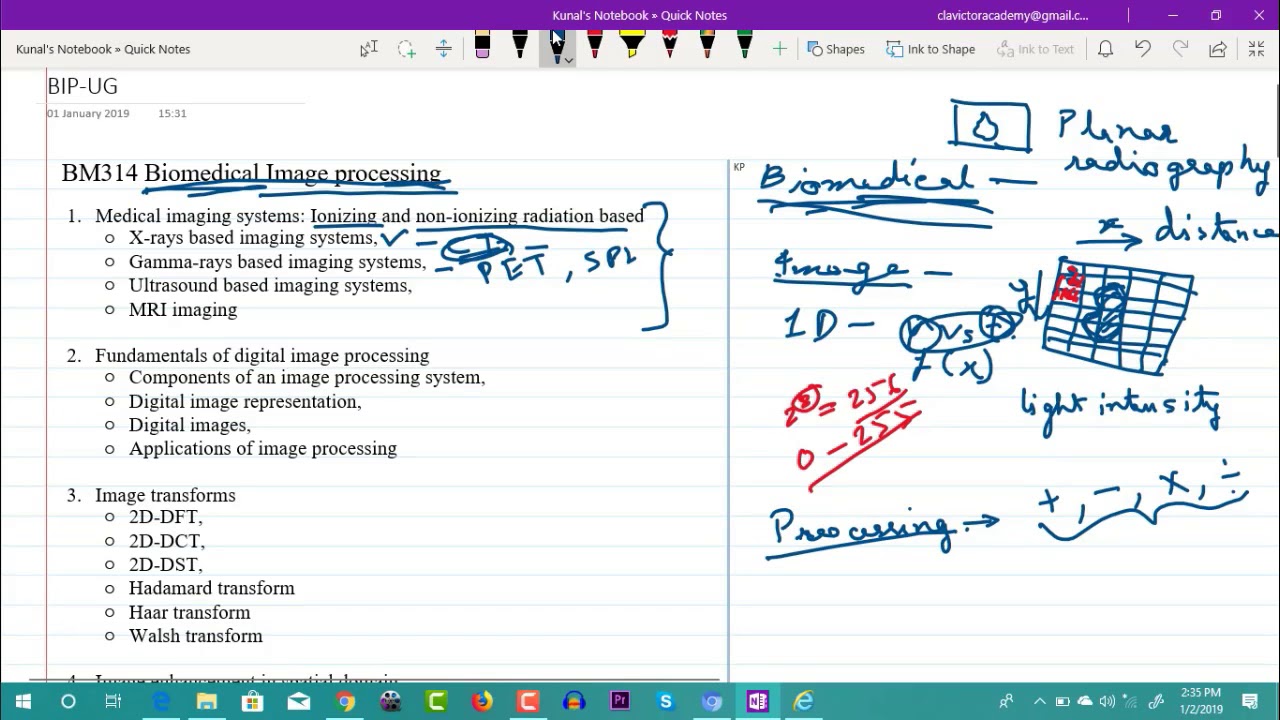 Kunal's Notebook » Quick Notes
clavictoracademy@gmail.c...
Kunal's Notebook » Quick Notes
Shapes
Ink to Shape
Ink to Text
BIP-UG
01 January 2019 15:31
BM314 Biomedical Image processing
1. Medical imaging systems: Ionizing and non-ionizing radiation based
o X-rays based imaging systems, - CT
o Gamma-rays based imaging systems, - PET, SPE
o Ultrasound based imaging systems,
o MRI imaging
2. Fundamentals of digital image processing
o Components of an image processing system,
o Digital image representation,
o Digital images,
o Applications of image processing
3. Image transforms
o 2D-DFT,
o 2D-DCT,
o 2D-DST,
o Hadamard transform
o Haar transform
o Walsh transform
4. Image enhancement in spatial domain
KP
Planar
radiography
Biomedical —
x distance
Image —
y
1D — V vs t
f(x)
2^8 = 256
0 - 255
light intensity
Processing → +, -, ×, ÷
2:35 PM
1/2/2019